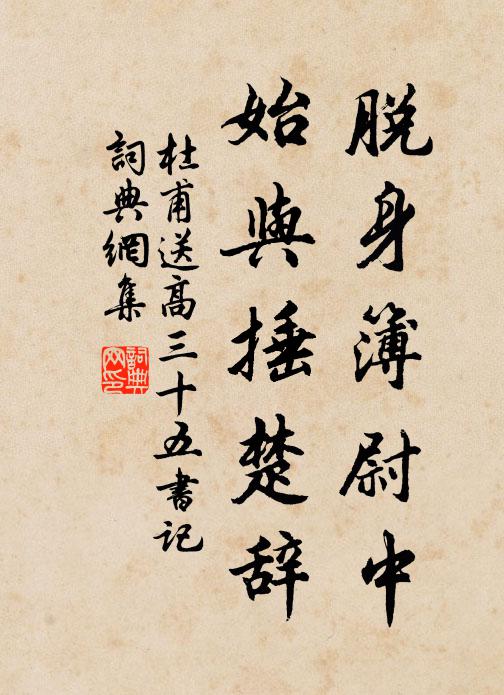 脱身簿尉中
始與捶楚辞
杜甫送高三十五書記
詞典網集
詞典网印